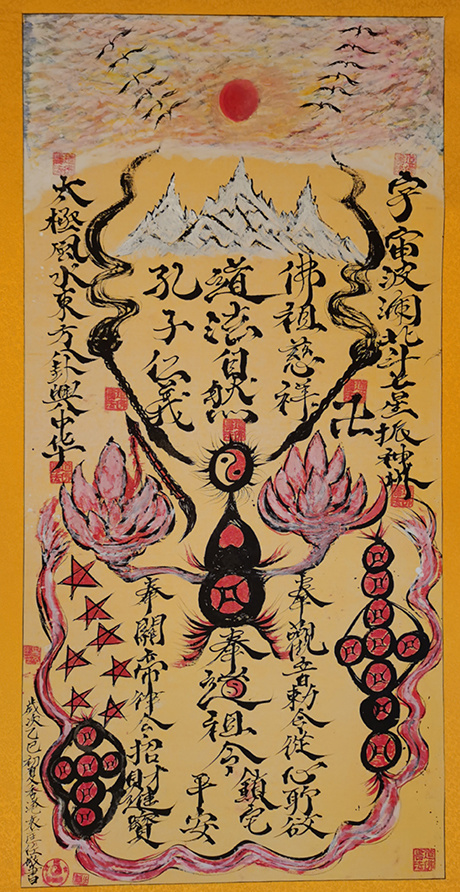 宇宙波瀾北斗七星振神州
佛祖慈祥
道法自然
孔子仁義
太極風水東方八卦興中华
卍
奉觀音勅令從心所欲
奉道祖令鎮宅
平安
奉關帝律令招財進寶
歲次乙巳初夏香港